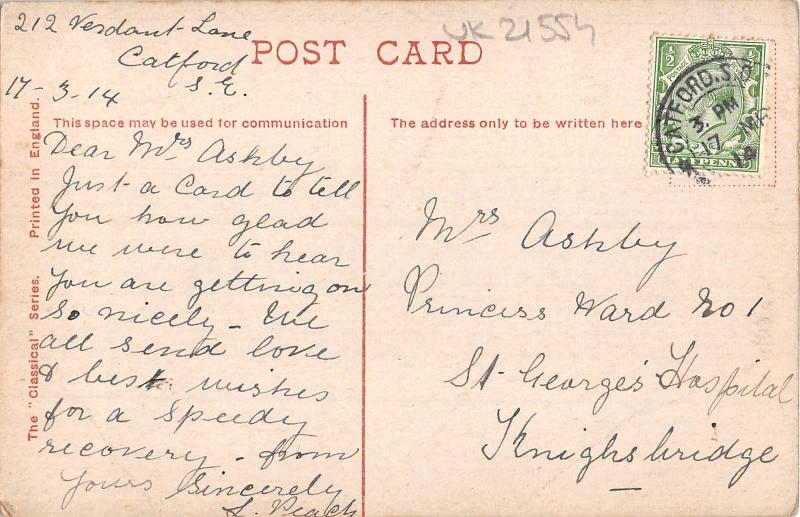 212 Verdant Lane
Catford
S.E.
17-3-14
POST CARD
UK 21554
This space may be used for communication
The address only to be written here
Dear Mrs Ashby
Just a Card to tell
you how glad
we were to hear
you are getting on
so nicely - We
all send love
& best wishes
for a speedy
recovery - from
yours Sincerely
L. Peach
Mrs Ashby
Princess Ward No 1
St George's Hospital
Knighsbridge
The "Classical" Series. Printed in England.
CATFORD. S.E.
3. PM
17 MR
14
1/2
HALFPENNY